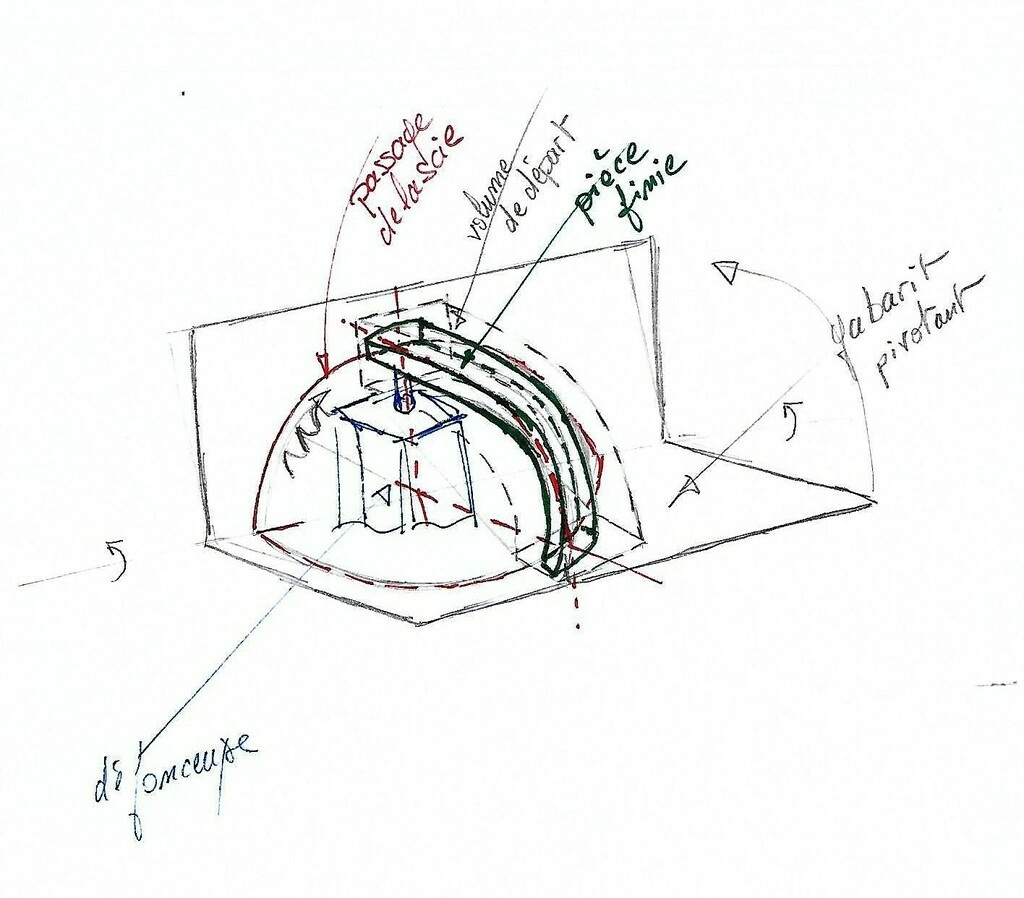 passage
de la scie
volume
de départ
pièce
finie
gabarit
pivotant
défonceuse